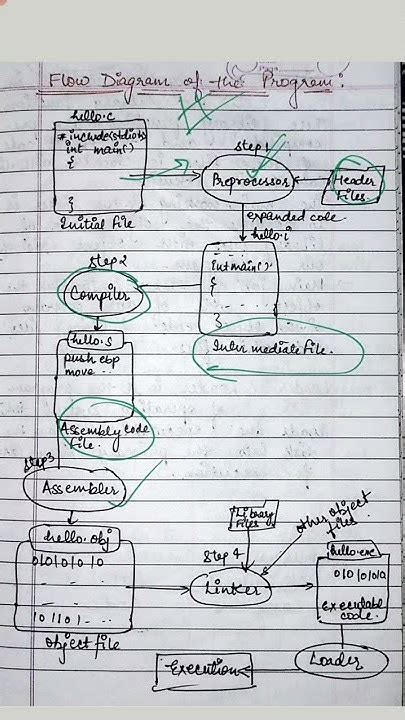 Flow Diagram of the Program:
hello.c
#include(stdioh)
int main()
{
}
Initial file
step 1
Preprocessor
Header
Files.
expanded code
hello.i
int main()
{
}
Inter mediate file.
step 2
Compiler
hello.s
push ebp
move ..
Assembly code
file.
step 3
Assembler
hello.obj
01010101 0
101101...
object file
Library
files
other object
files.
step 4
Linker
hello.exe
01010101
executable
code.
Loader
Execution